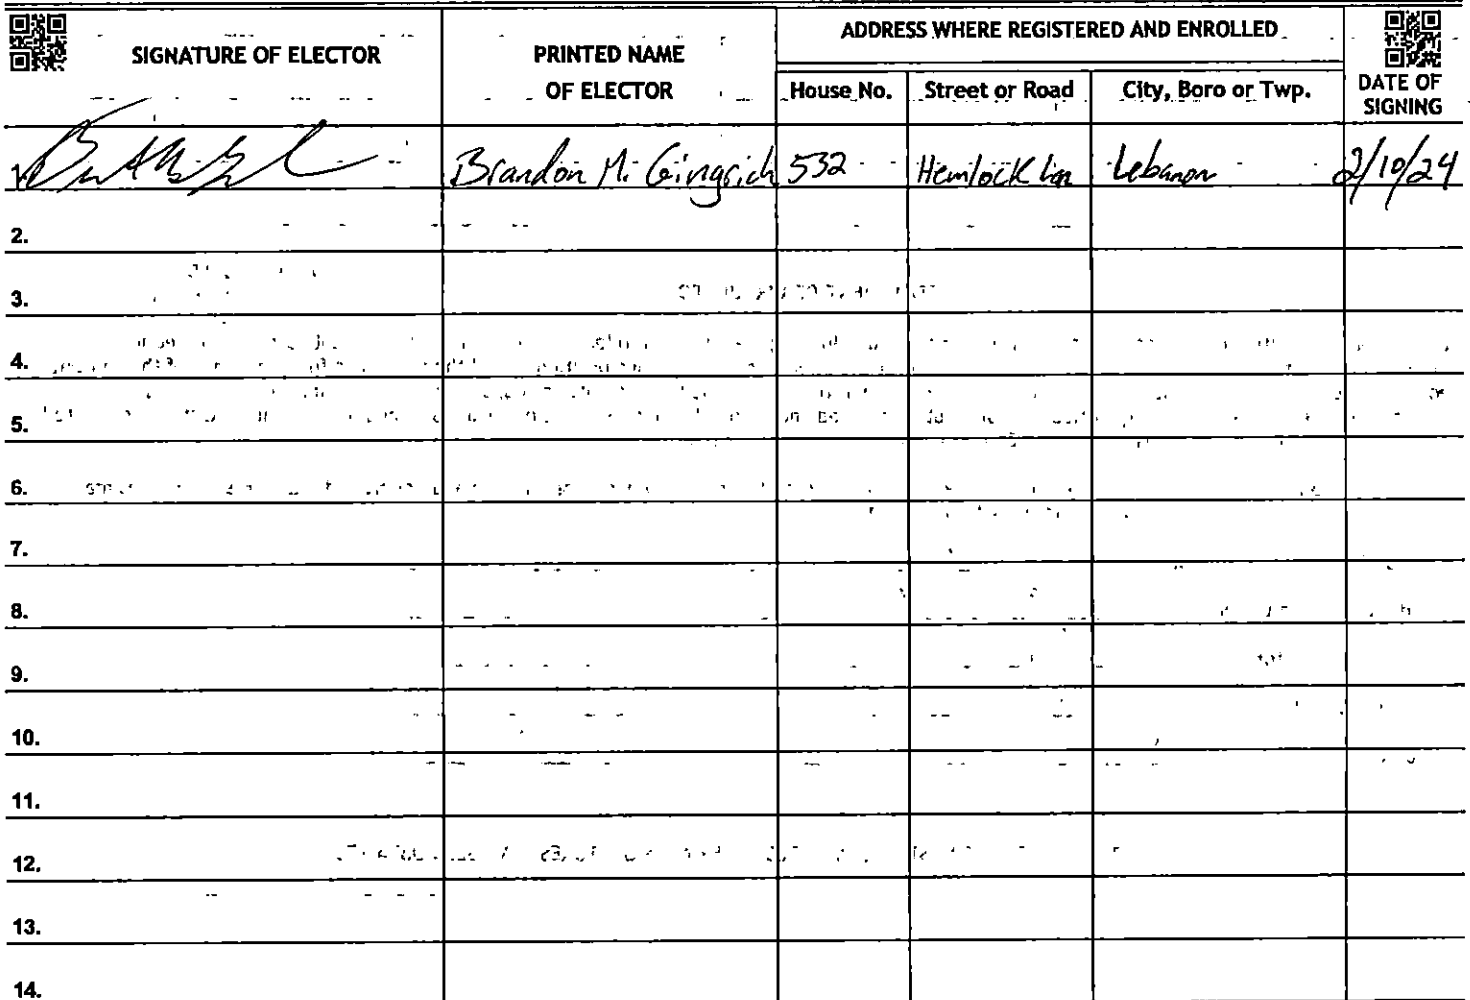 SIGNATURE OF ELECTOR
PRINTED NAME
OF ELECTOR
ADDRESS WHERE REGISTERED AND ENROLLED
House No.
Street or Road
City, Boro or Twp.
DATE OF
SIGNING
Brandon M. Gingrich 532 Hemlock Lan Lebanon 2/10/24
2.
3.
4.
5.
6.
7.
8.
9.
10.
11.
12.
13.
14.